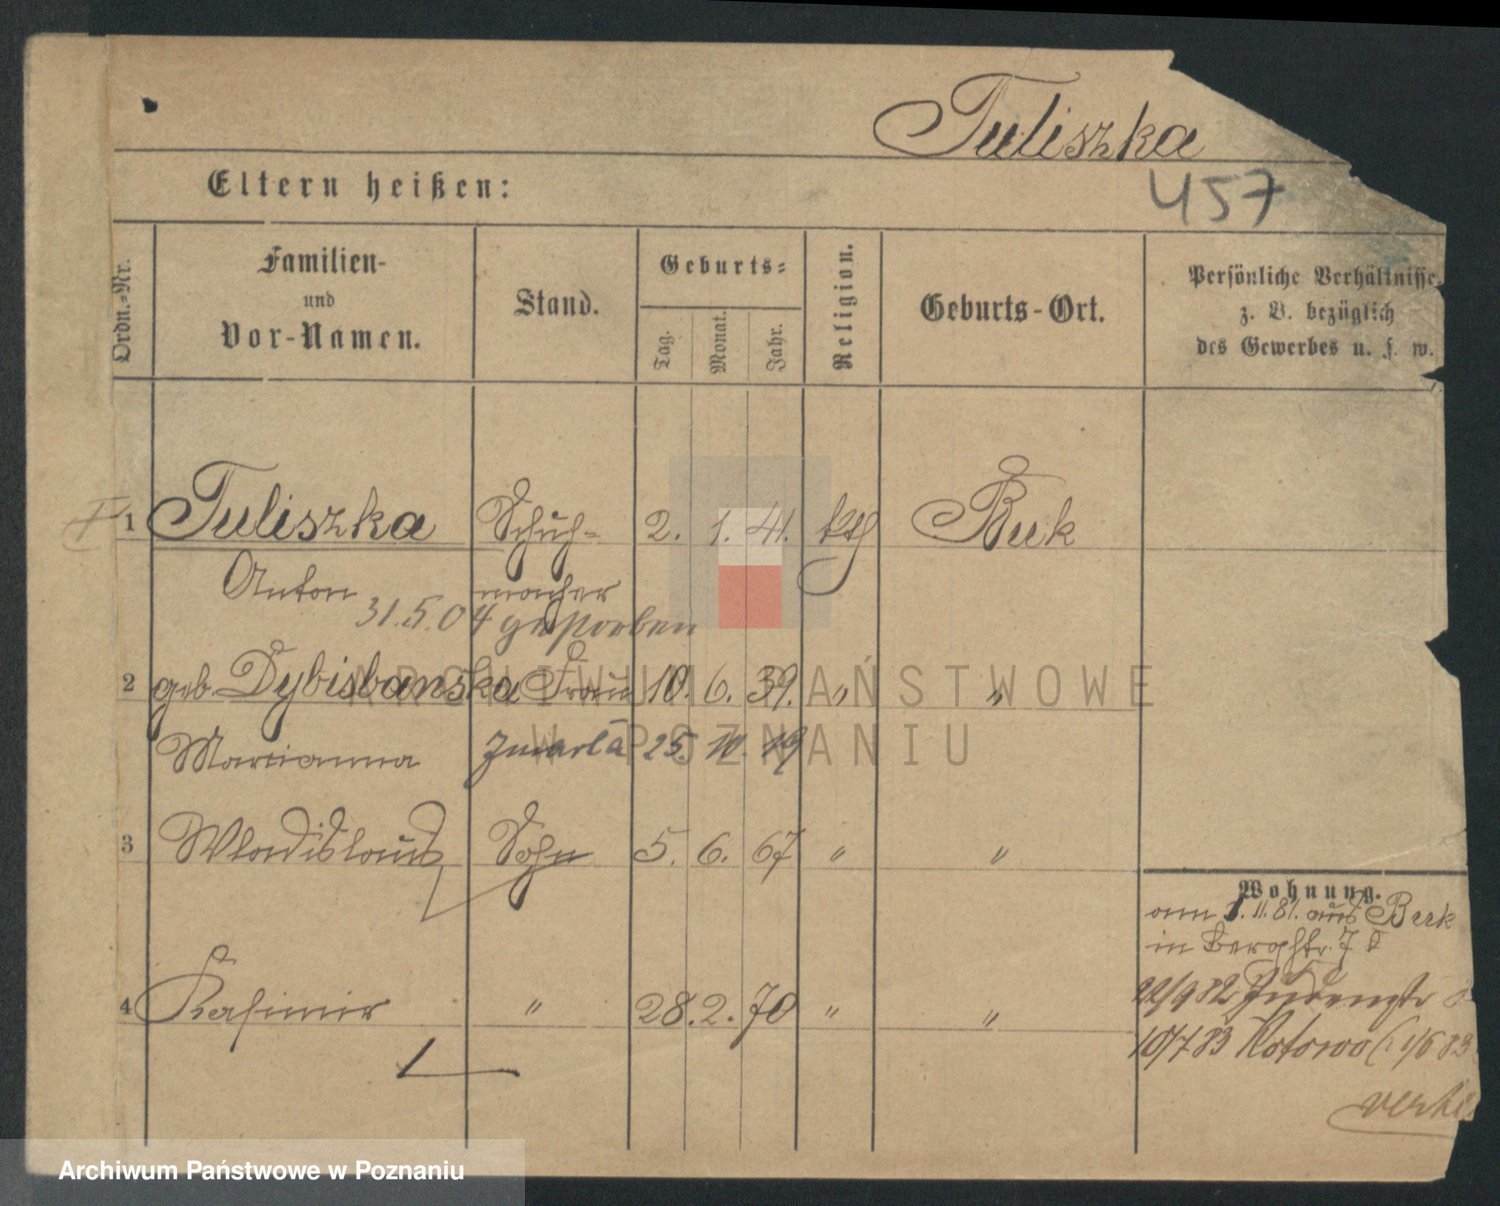 Tuliszka
457
Eltern heißen:
Ordn.-Nr.
Familien- und Vor-Namen.
Stand.
Geburts-
Tag.
Monat.
Jahr.
Religion.
Geburts-Ort.
Persönliche Verhältnisse
z. B. bezüglich
des Gewerbes u. s. w.
1 Tuliszka Schuh- 2. 1. 41. kth Buk
Anton macher
31.5.04 gestorben
2 geb. Dybisbanska Frau 10. 6. 39. " "
Marianna zmarła 25. 10. 19
3 Wladislaus Sohn 5. 6. 67 " "
Wohnung.
am 1.11.81. aus Buk
in Bergstr. 7
4 Kasimir " 28. 2. 70 " "
22/9 82 Judenstr
10/7 83 Kotowo (1/6 83
ARCHIWUM PAŃSTWOWE
W POZNANIU
Archiwum Państwowe w Poznaniu